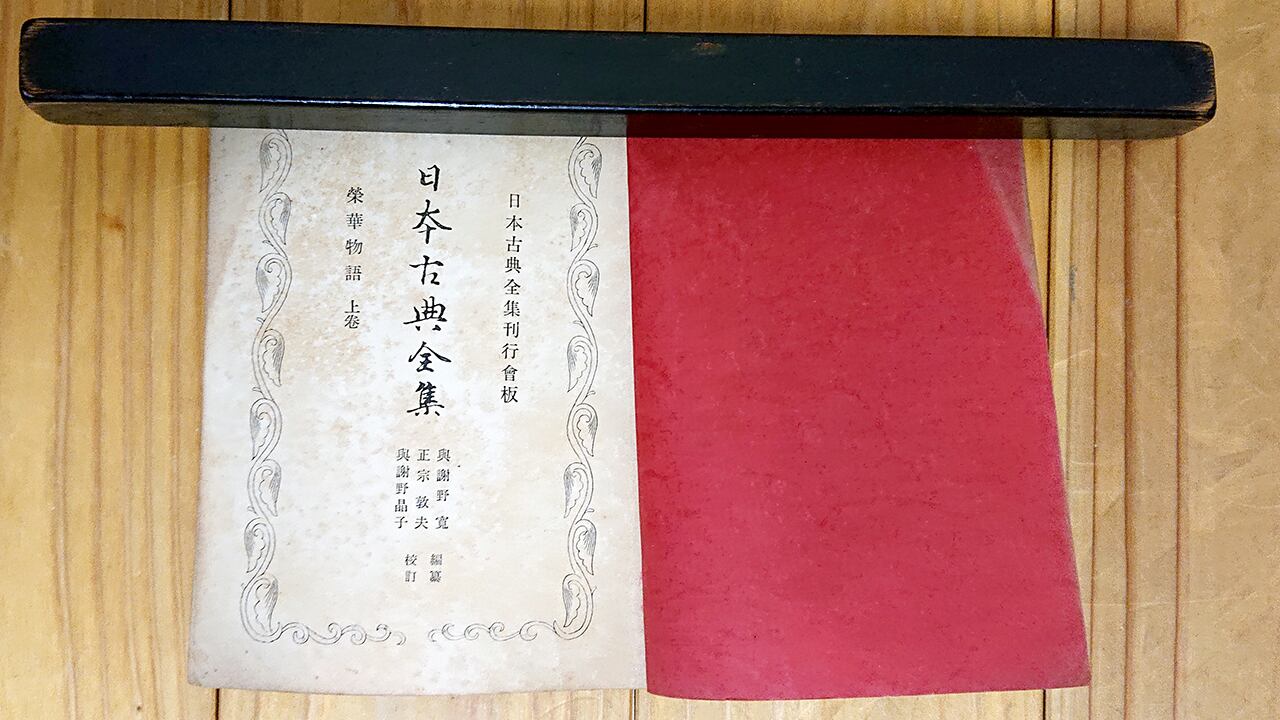 日本古典全集刊行會板
日本古典全集
與謝野寬
正宗敦夫
與謝野晶子
編纂
校訂
榮華物語 上卷